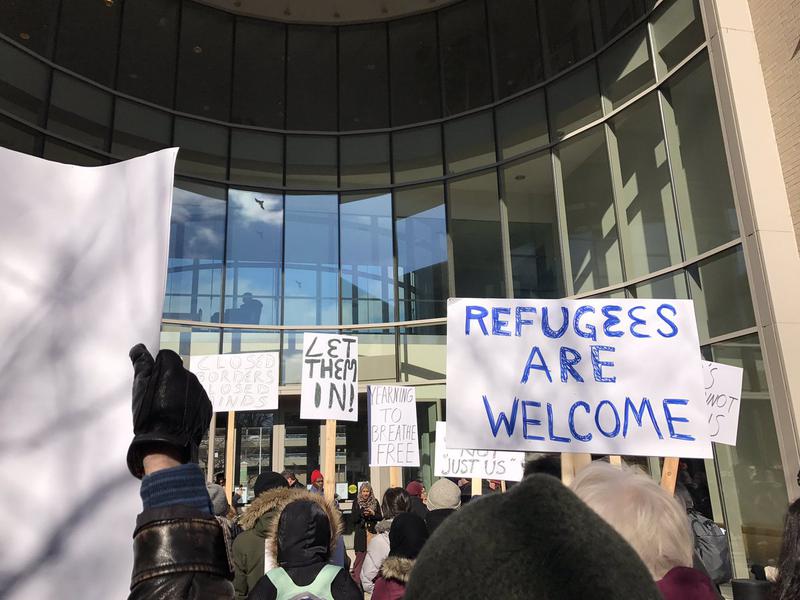 CLOSED
BORDERS
CLOSED
MINDS
LET
THEM
IN!
YEARNING
TO
BREATHE
FREE
NOT
"JUST US"
REFUGEES
ARE
WELCOME
NOT